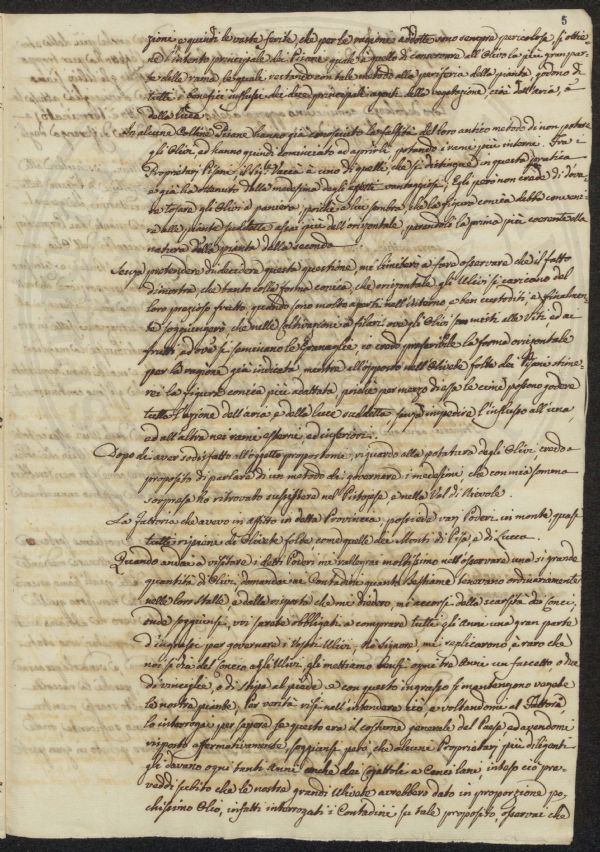 5
zione e quindi le vaste ferite, che per le ragione addotte sono sempre pericolose si ottie-
ne l'intento principale dei Pisani, quale è quello di conservare all'Olivo la più gran par-
te delle rama, le quali restando con tale metodo alla periferia della pianta, godono di
tutti i benefici influssi dei due principali agenti della vegetazione, cioè dell'aria, e
della luce.
In alcune Colline Pisane hanno già conosciuto la falsità del loro antico metodo di non potare
gli Olivi, ed hanno quindi cominciato ad aprirli potando i rami più interni. Fra i
Proprietari Pisani il Sig.re Vaccà è uno di quelli, che si distingue in questa pratica
e già ha ottenuto dalla medesima degli effetti vantaggiosi; Egli però non crede di dove-
re tosare gli Olivi a paniera, poiché a lui sembra, che la figura conica debba conveni-
re alle piante suddette assai più dell'orizontale, parendoli la prima più coerente alla
natura delle piante della seconda.
Senza pretendere di decidere questa questione, mi limiterò a fare osservare che il fatto
dimostra che tanto colla forma conica, che orizontale gli Ulivi si caricono del
loro prezioso frutto, quando sono molto aperti nell'interno, e ben custoditi, e finalmen-
te soggiungerò, che nelle Coltivazioni a filari ove gli Olivi son misti alle Viti ed ai
frutti, ed ove si seminano le Granaglie, io credo preferibile la forma orizontale
per la ragione già indicata mentre all'opposto nell'Olivete folte dei Pisani stime-
rei la figura conica più adattata, poiché per mezzo di essa le cime possono godere
tutta l'azione dell'aria, e della luce suddetta, senza impedire l'influsso all'una,
ed all'altra nei rami esterni, ed inferiori.
Dopo di aver sodisfatto all'oggetto propostomi, riguardo alla potatura degli Olivi credo a
proposito di parlare di un metodo di governare i medesimi che con mia somma
sorpresa ho ritrovato sussistere nel Pistojese, e nella Val di Nievole.
La fattoria che avevo in affitto in detta Provincia, possiede varj Poderi in monte, quasi
tutti ripieni di Olivete folte, come quelle dei Monti di Pisa, e di Lucca.
Quando andai a visitare i detti Poderi, mi rallegrai moltissimo nell'osservare una sì grande
quantità di Olivi, domandai ai Contadini quanto bestiame tenevano ordinariamente
nelle loro Stalle, e dalla risposta che mi diedero, mi accorsi della scarsità dei Conci,
onde soggiunsi, voi sarete obbligati a comprare tutti gli Anni una gran parte
d'ingrassi per governare i vostri Ulivi. No Signore, mi replicarono, è raro che
noi si dia del Concio agli Ulivi, gli mettiamo bensì ogni tre Anni un fascetto, o due
di vinciglie, o di stipa al piede, e con questo ingrasso si mantengono vegete
le nostre piante. Per verità risi nell'intendere ciò, e voltandomi al Fattore,
lo interrogai per sapere se questo era il costume generale del Paese, ed avendomi
risposto affermativamente, soggiunse però, che alcuni Proprietari più diligenti
gli davano ogni tanti Anni anche dei Cojattoli e Cenci lani, inteso ciò pre-
veddi subito che le nostre grandi Ulivete avrebbero dato in proporzione po-
chissimo Olio, infatti interrogati i Contadini su tale proposito, osservai che